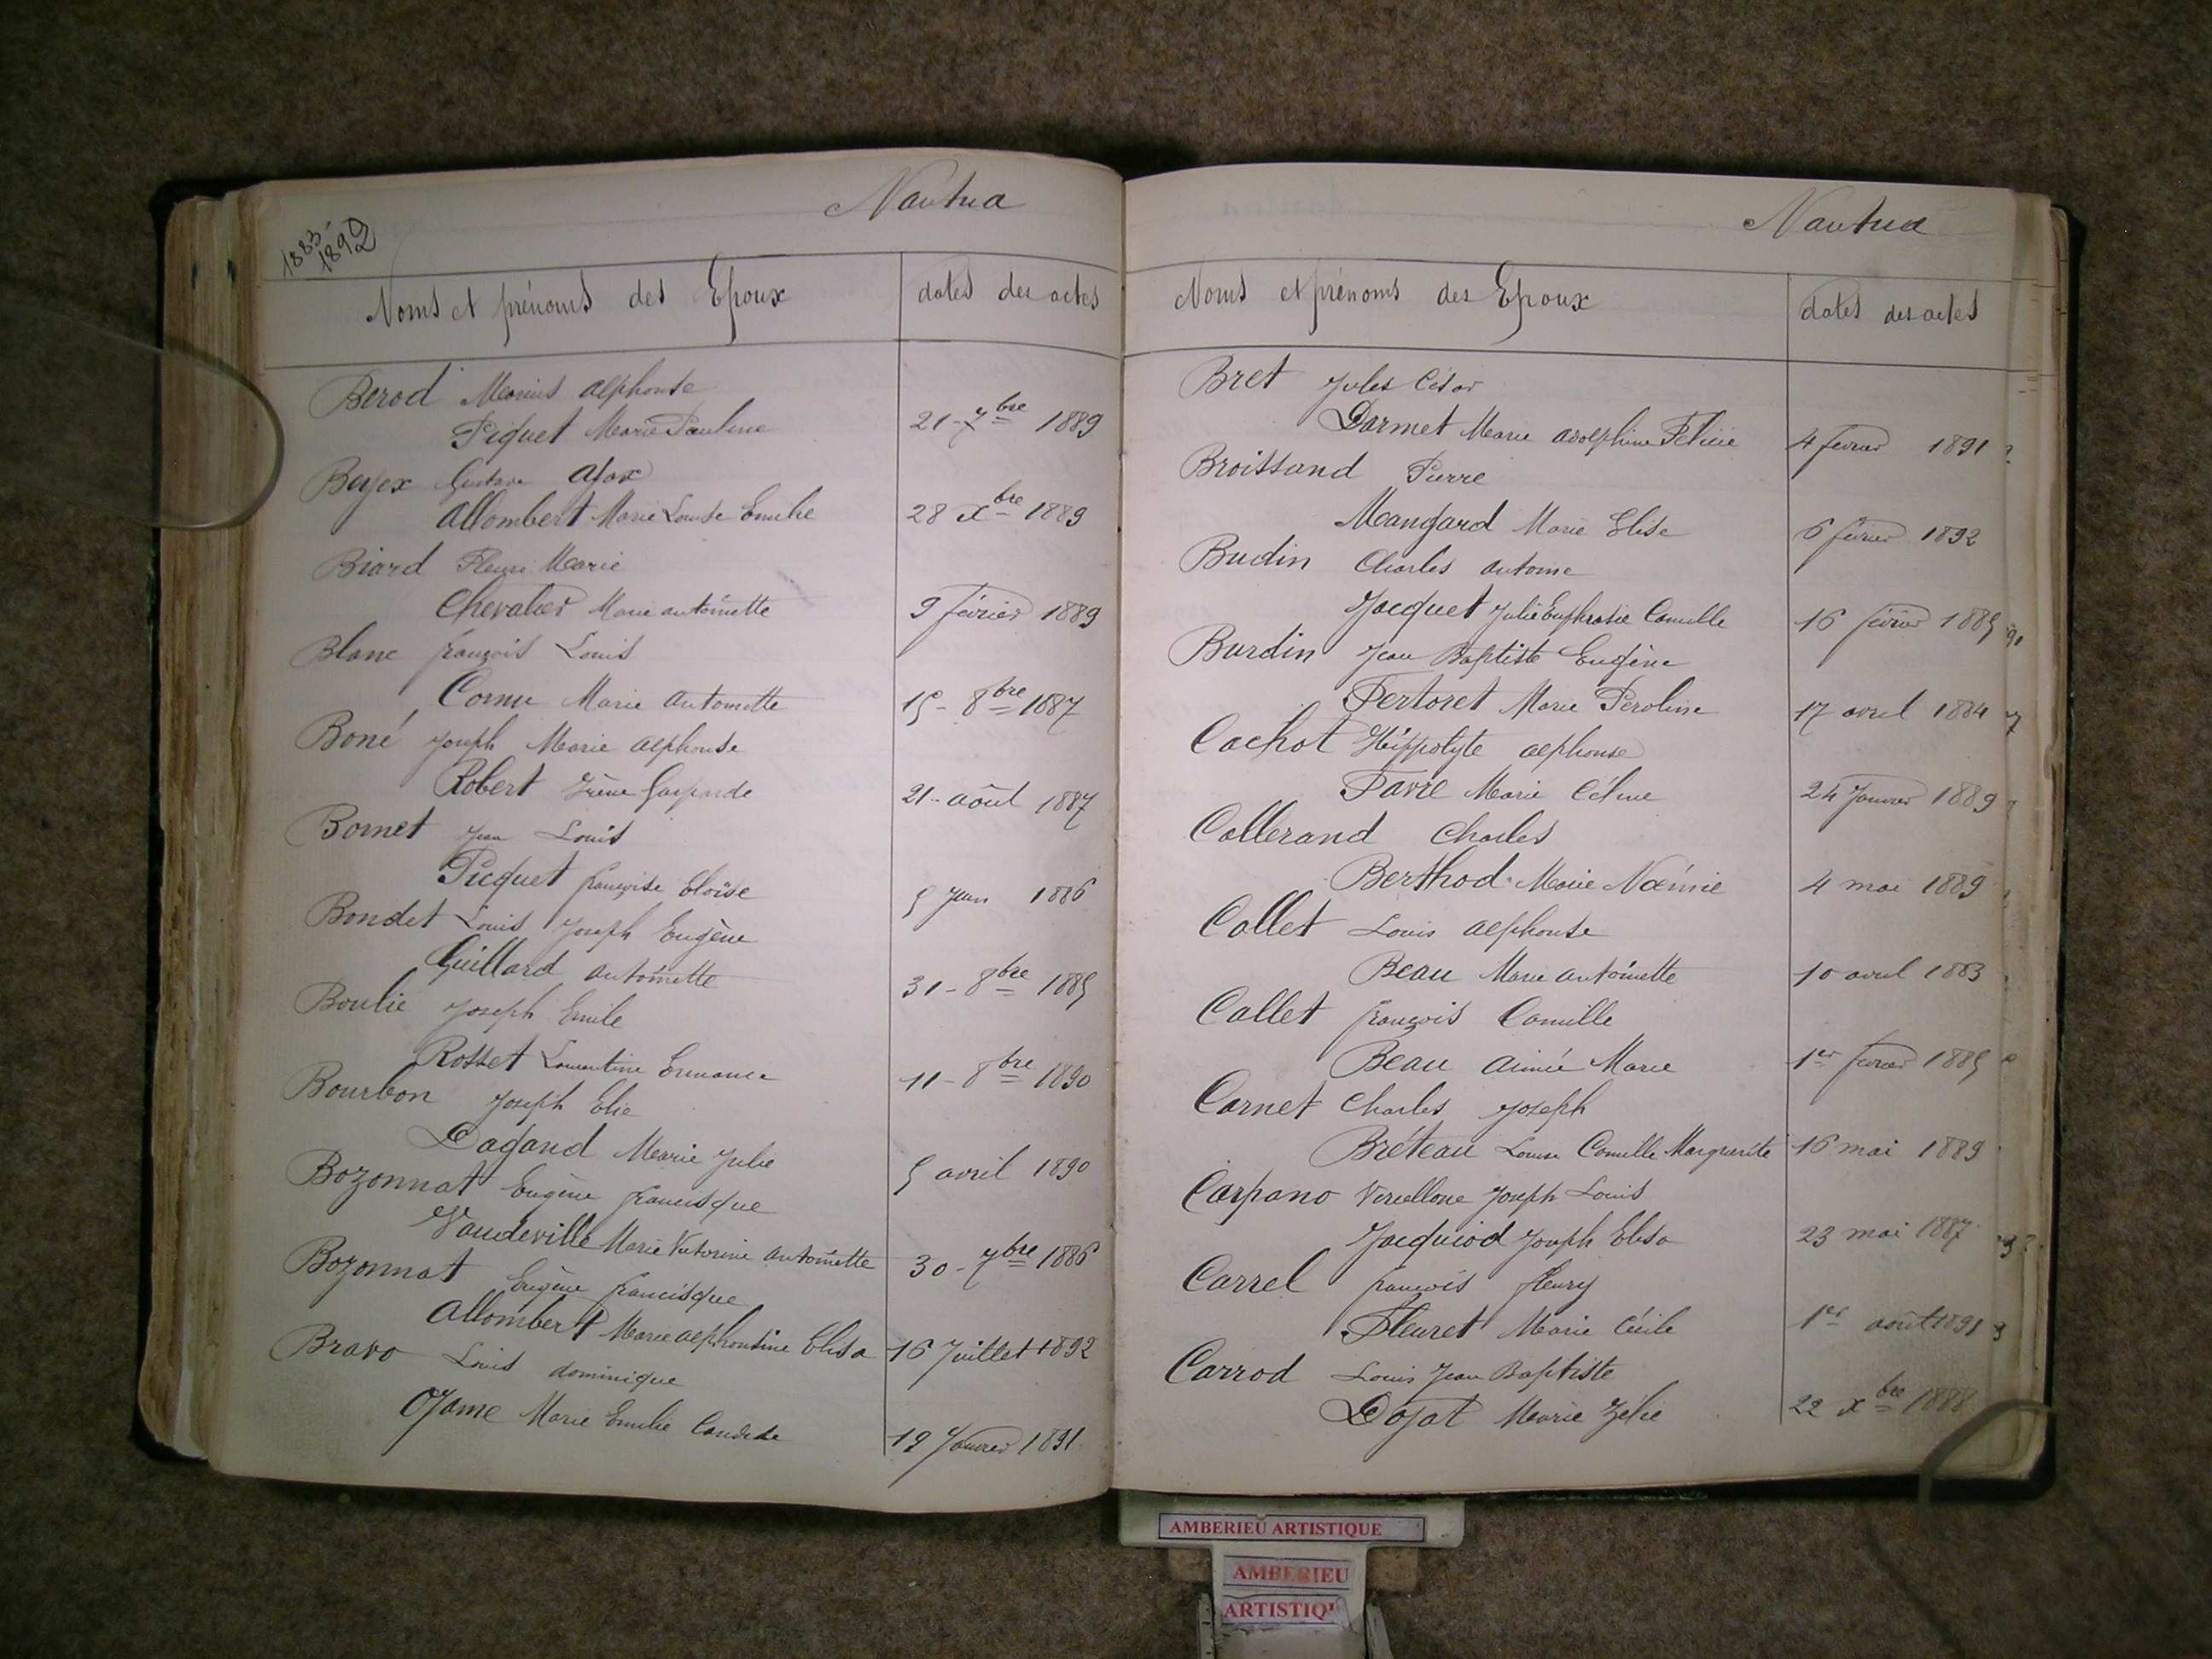 1883-
1892
Nantua
Noms et prénoms des Epoux
dates des actes
Berod Marius alphonse
Piquet Marie Pauline
21-7bre 1889
Beyex Gustave Ajax
Allombert Marie Louise Emilie
28 Xbre 1889
Biard Fleuri Marie
Chevalier Marie antoinette
9 février 1889
Blanc françois Louis
Cornu Marie antoinette
15 - 8bre 1887
Boné Joseph Marie alphonse
Robert Irène Gasparde
21 - août 1887
Bornet Jean Louis
Picquet françoise Eloïse
5 Juin 1886
Bondet Louis Joseph Eugène
Guillard antoinette
31 - 8bre 1885
Boulie Joseph Emile
Rosset Laurentine Ermance
11 - 8bre 1890
Bourbon Joseph Elie
Dagand Marie Julie
5 avril 1890
Bozonnat Eugène francisque
Vaudeville Marie Victorine antoinette
30 - 7bre 1886
Bozonnat Eugène francisque
Allombert Marie alphonsine Elisa
16 Juillet 1892
Bravo Louis dominique
Ojame Marie Emilie Candide
19 Janvier 1891
Nantua
Noms et prénoms des Epoux
dates des actes
Bret Jules César
Darmet Marie adolphine Félicie
4 février 1891
Broissand Pierre
Mangard Marie Elise
6 février 1892
Budin Charles antoine
Jacquet Julie Euphrasie Camille
16 février 1885
Burdin Jean Baptiste Eugène
Tertoret Marie Péroline
17 avril 1884
Cachot Hippolyte alphonse
Favre Marie Céline
24 Janvier 1889
Callerand Charles
Berthod Marie Noémie
4 mai 1889
Callet Louis alphonse
Beau Marie antoinette
10 avril 1883
Callet françois Camille
Beau aimée Marie
1er février 1885
Carnet Charles Joseph
Bréteau Louise Camille Marguerite
16 mai 1889
Carpano Vercellone Joseph Louis
Jacquiod Joseph Elisa
23 mai 1887
Carrel françois fleury
Fleuret Marie Cécile
1er août 1891
Carrod Louis Jean Baptiste
Dojat Marie Zélie
22 Xbre 1888
AMBERIEU ARTISTIQUE
AMBERIEU